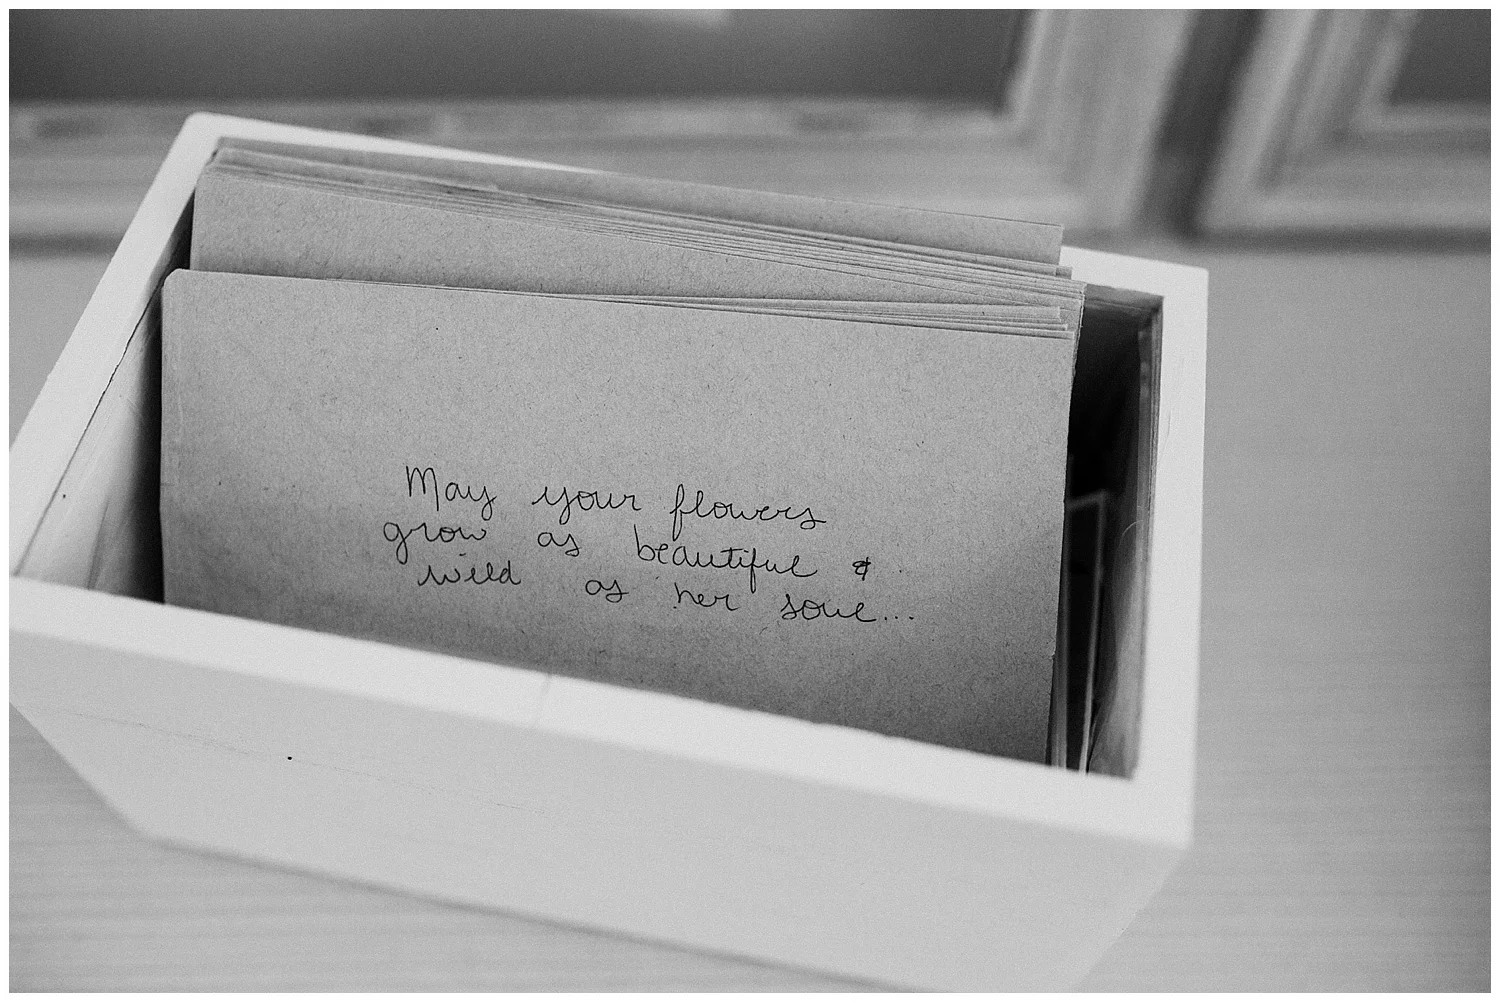 May your flowers
grow as beautiful &
wild as her soul...